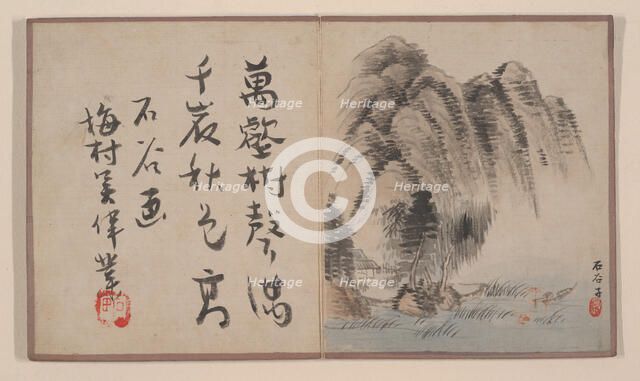 萬壑树聲滿
千崖秋色高
石谷画
梅村吴偉業
石谷子
Heritage
Heritage
Heritage
Heritage
Heritage
Heritage
Heritage
Heritage